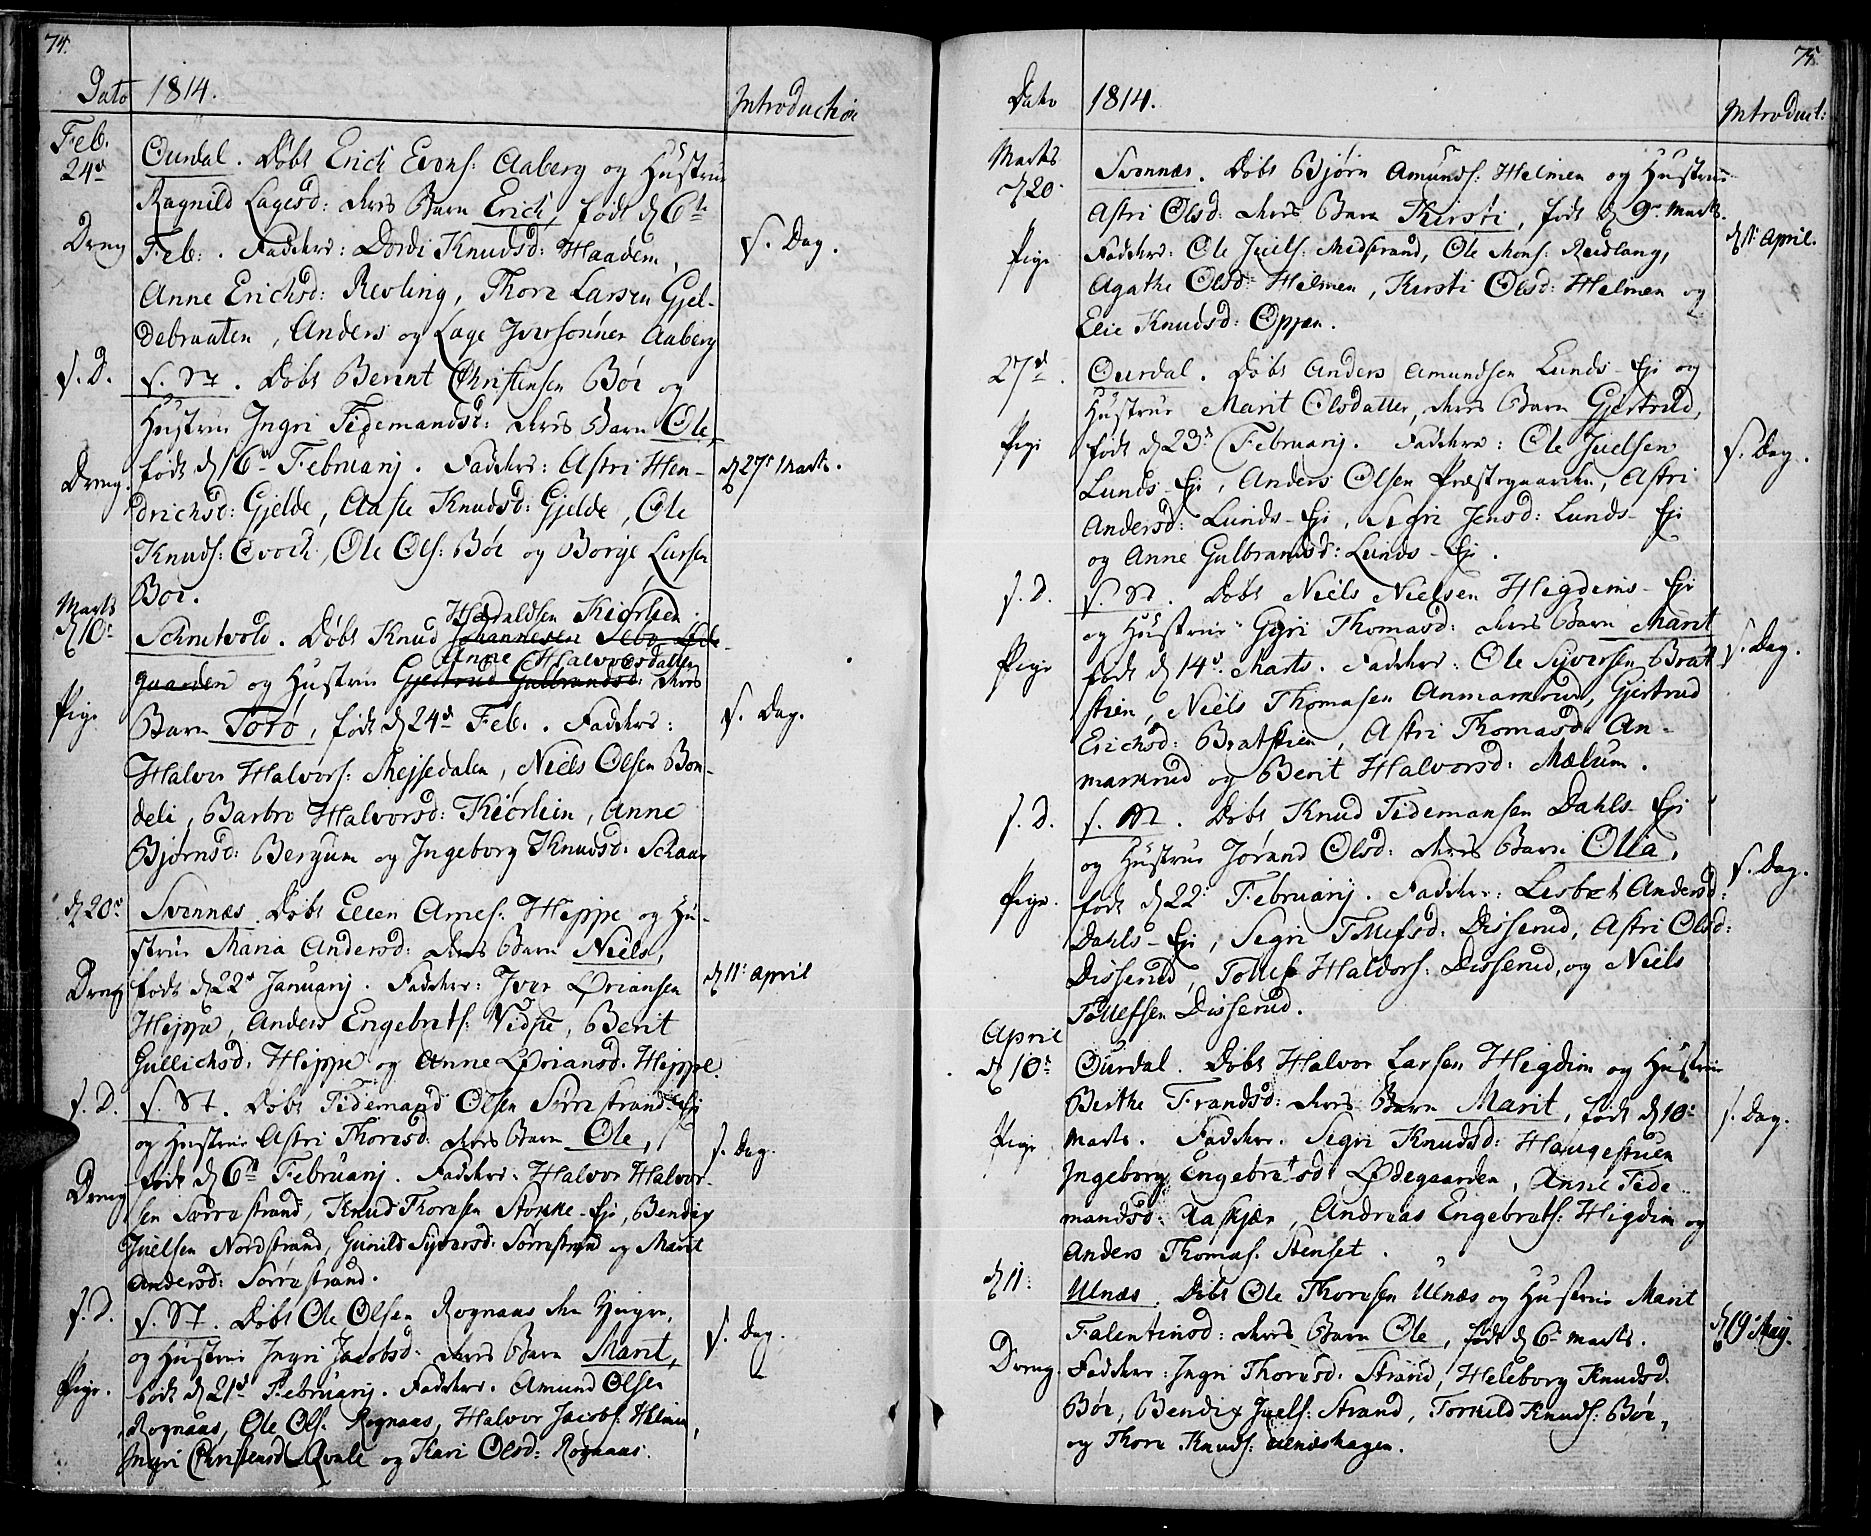 74.
Dato 1814. Introduction
Feb. 24d Ourdal. Døbt Erich Evens: Aaberg og Hustrue
Ragnild Lagesd: deres Barn Erich, født d 6te
Dreng Feb: . Faddere: Dordi Knudsd: Haadem, s. Dag.
Anne Erichsd: Revling, Thore Larsen Gjel-
debraaten, Anders og Lage Iversønner Aaberg
s. D. s. St. Døbt Berent Christensen Böe og
Hustrue Ingri Tidemandsd: deres Barn Ole,
Dreng. født d 6d Februarij. Faddere: Astri Hen- d 27d Marts.
drichsd: Gjelde, Aaste Knudsd: Gjelde, Ole
Knuds: Qvoch, Ole Ols: Böe og Borge Larsen
Böe.
Haraldsen Kiörlien
Marts d 10d Schrutvold. Døbt Knud Johannesen Sebo Øde-
Anne Halvorsdatter
gaarden og Hustrue Gjertrud Gulbrandsd: deres
Pige Barn Toro, født d 24d Feb. . Faddere: s. Dag.
Halvor Halvors: Mejsedalen, Niels Olsen Bon-
deli, Barbro Halvorsd: Kiörlien, Anne
Bjørnsd: Bergum og Ingeborg Knudsd: Schaar
d 20d Svennæs. Døbt Ellen Arnes: Hippe og Hu-
strue Maria Andersd: deres Barn Niels,
Dreng født d 22d Januarij. Faddere: Iver Ørjansen d 11d April
Hippe, Anders Engebrets: Vidste, Berit
Gullichsd: Hippe og Anne Ørjansd: Hippe.
s. D. s. St. Døbt Tidemand Olsen Sörrestrands Ejj
og Hustrue Astri Thoresd: deres Barn Ole, s. Dag.
Dreng født d 6d Februarij. Faddere: Halvor Halvor-
sen Sørrestrand, Knud Thoresen Storke-Ejj, Bendix
Juelsen Nordstrand, Gunild Syversd: Sörrestrand og Marit
Andersd: Sörrestrand.
s. D. s. St. Døbt Ole Olsen Rognaas den Yngre, s. Dag.
og Hustrue Ingri Jacobsd: deres Barn Marit,
Pige. født d 21d Februarij. Faddere: Amund Olsen
Rognaas, Ole Ols: Rognaas, Halvor Jacobs: Helmen,
Ingri Christensd: Qvale og Kari Olsd: Rognaas.
75.
Dato 1814. Introduct:
Marts d 20. Svennæs. Døbt Bjørn Amunds: Helmen og Hustrue
Astri Olsd: deres Barn Kirsti, født d 9d Marts.
Pige Faddere: Ole Juels: Midstrand, Ole Mons: Reidlang, d 11 April.
Agathe Olsd: Helmen, Kirsti Olsd: Helmen og
Elie Knudsd: Opjen.
27d. Ourdal. Døbt Anders Amundsen Lunds-Ejj og
Hustrue Marit Olsdatter, deres Barn Gjertrud,
Pige født d 23d Februarij. Faddere: Ole Juelsen s. Dag.
Lunds-Ejj, Anders Olsen Præstegaarden, Astri
Andersd: Lunds-Ejj, Segri Jensd: Lunds-Ejj
og Anne Gulbrandsd: Lunds-Ejj.
s. D. s. St. Døbt Niels Nielsen Hegdems-Ejj
og Hustrue Gyri Thomasd: deres Barn Marit s. Dag.
Pige født d 14d. Marts. Faddere: Ole Syversen Brat
stien, Niels Thomasen Anmarkrud, Gjertrud
Erichsd: Bratstien, Astri Thomasd: An-
markrud og Berit Halvorsd: Mælum.
s. D. s. St. Døbt Knud Tidemansen Dahls-Ejj
og Hustrue Jørand Olsd: deres Barn Olia, s. Dag.
Pige. født d 22d Februarij. Faddere: Lisbet Andersd:
Dahls-Ejj, Segri Tollefsd: Disserud, Astri Olsd:
Disserud, Tollef Haldors: Disserud, og Niels
Tollefsen Disserud.
April d 10d Ourdal. Døbt Halvor Larsen Hegdim og Hustrue
Berthe Frandsd: deres Barn Marit, født d 10d s. Dag.
Pige Marts. Faddere. Segri Knudsd: Haugestuen
Ingeborg Engebretsd: Ødegaarden, Anne Tide-
mandsd: Raskjær, Andreas Engebrets: Hegdim og
Anders Thomas: Stenset.
d 11. Ulnæs. Døbt Ole Thoresen Ulnæs og Hustrue Marit
Falentinsd: deres Barn Ole, født d 6d Marts. d 19d Maij.
Dreng. Faddere: Ingri Thoresd: Strand, Helleborg Knudsd.
Böe, Bendix Juels: Strand, Torkild Knuds: Böe,
og Thore Knuds: Ulnæshagen.